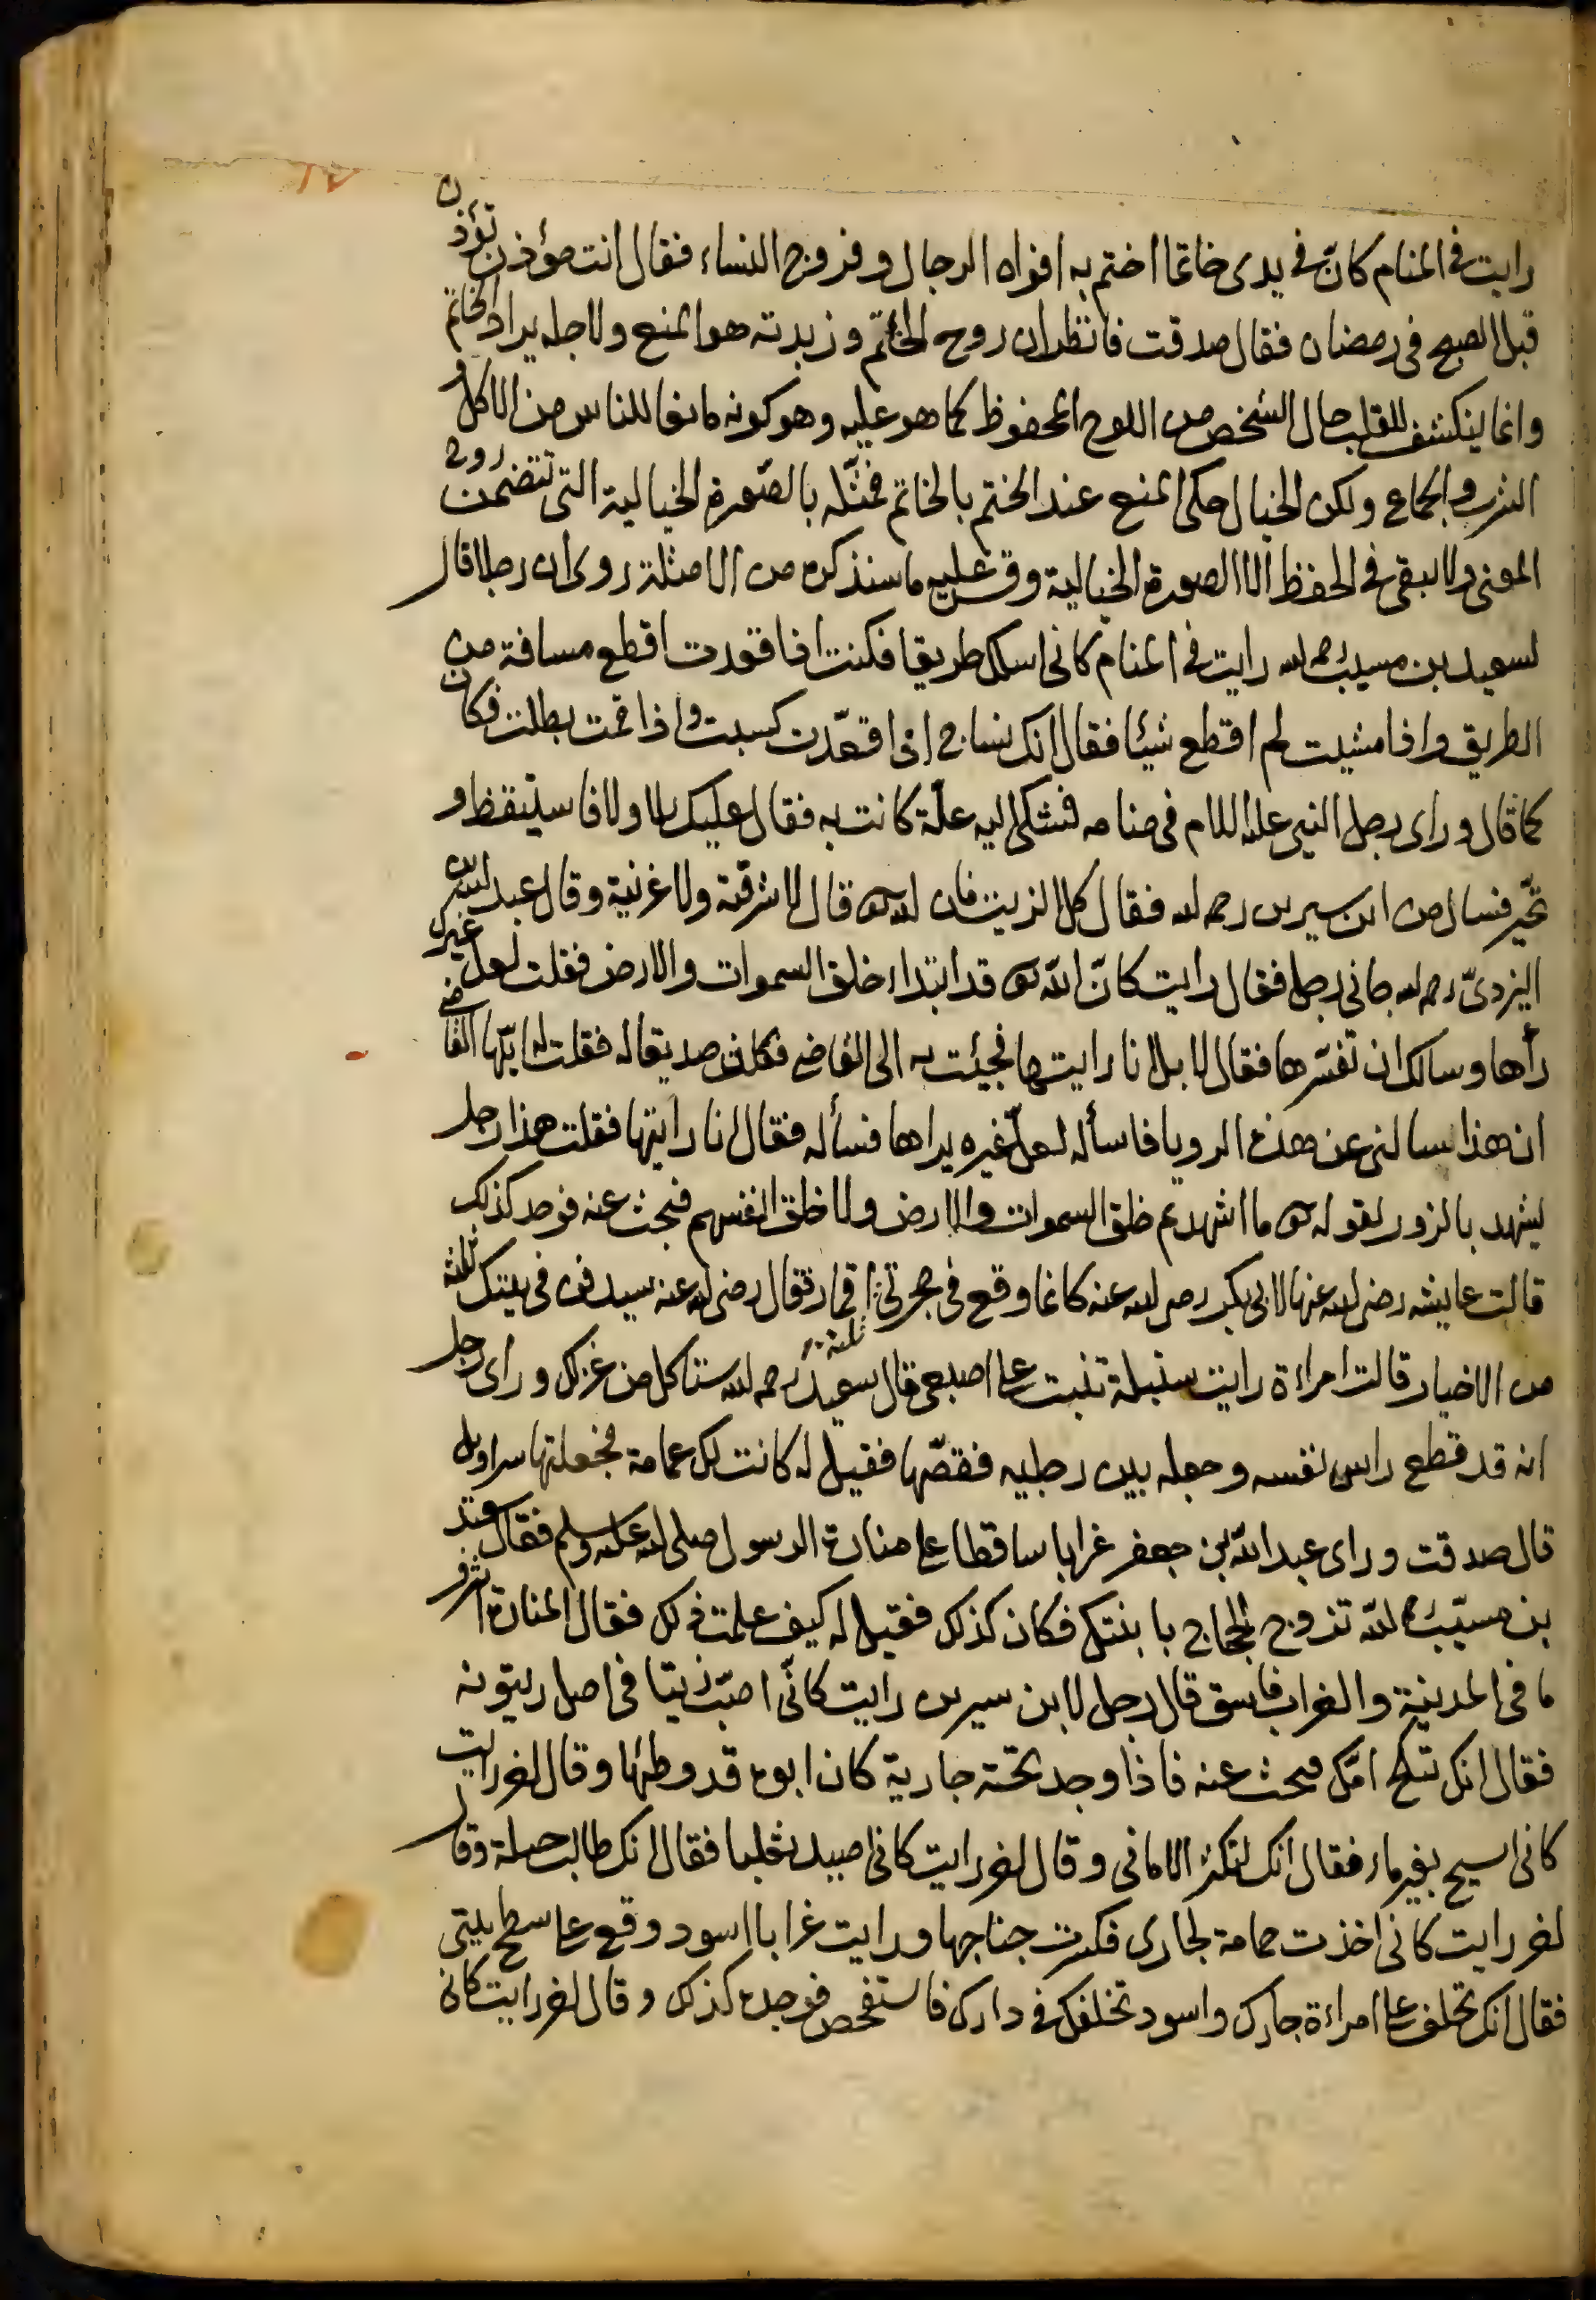 رايت في المنام كانّ في يدى خاتما اختم به افواه الرجال وفروج النساء فقال انت مؤذن تؤذن
قبل الصبح في رمضان فقال صدقت فانظر ان روح الختم وزبدته هو المنع ولاجله يراد الخاتم
وانما ينكشف للقلب حال الشخص من اللوح المحفوظ كما هو عليه وهو كونه مانعا للناس من الاكل و
الشرب والجماع ولكن الخيال حكى المنع عند الختم بالخاتم فمثّله بالصّورة الخيالية التي تتضمن روح
المعنى ولا يبقى في الحفظ الا الصورة الخيالية وقس عليه ما سنذكره من الامثلة روى ان رجلا قال
لسعيد بن مسيب رحمه الله رايت في المنام كانى اسلك طريقا فكنت اذا قعدت اقطع مسافة من
الطريق واذا مشيت لم اقطع شيئا فقال انك نساج اذا قعدت كسبت واذا قمت بطلت فكان
كما قال وراى رجل النبي عليه السلام في منامه فشكى اليه علّة كانت به فقال عليك بلا ولا فاستيقظ و
تحيّر فسال من ابن سيرين رحمه الله فقال كل الزيت فان الله تعالى قال لا شرقية ولا غربية وقال عبد الله بن
اليزدىّ رحمه الله جانى رجل فقال رايت كانّ الله تعالى قد ابتداء خلق السموات والارض فقلت لعل غيرك
رأها وسالك ان تفسّرها فقال لا بل انا رايتها فجيئت به الى القاضى وكان صديقا له فقلت له ايّها القاضى
ان هذا يسالنى عن هذه الرويا فاسأله لعلّ غيره يراها فسأله فقال انا رايتها فقلت هذا رجل
يشهد بالزور لقوله تعالى ما اشهدتهم خلق السموات والارض ولا خلق انفسهم فبحث عنه فوجد كذلك
قالت عايشه رضى الله عنها لابى بكر رضى الله عنه كانما وقع في حجرتي ثلثة اقمار فقال رضى الله عنه سيدفن في بيتك ثلثة
من الاخيار قالت امراءة رايت سنبلة تنبت على اصبعى قال سعيد رحمه الله ستاكل من غزلك وراى رجل
انه قد قطع راس نفسه وجعله بين رجليه فقصّها فقيل له كانت لك عمامة فجعلتها سراويل
قال صدقت وراى عبد الله بن جعفر غرابا ساقطا على منارة الرسول صلى الله عليه وسلم فقال سعيد
بن مسيّب رحمه الله تزوج الحجاج بابنتك فكان كذلك فقيل له كيف علمت ذلك فقال المنارة اشرف
ما في المدينة والغراب فاسق قال رجل لابن سيرين رايت كانّى اصبّ زيتا في اصل زيتونه
فقال انك تنكح امّك فبحث عنه فاذا وجد تحته جارية كان ابوه قد وطئها وقال اخر رايت
كانى اسبح بغير ماء فقال انك لتكثر الامانى وقال اخر رايت كانى اصيد ثعلبا فقال انك طالب حيلة وقال
اخر رايت كانى اخذت حمامة لجارى فكسرت جناحها ورايت غرابا اسود وقع على سطح بيتى
فقال انك تخلف على امراءة جارك واسود تخلفك في دارك فاستفحص فوجده كذلك وقال اخر رايت كانى